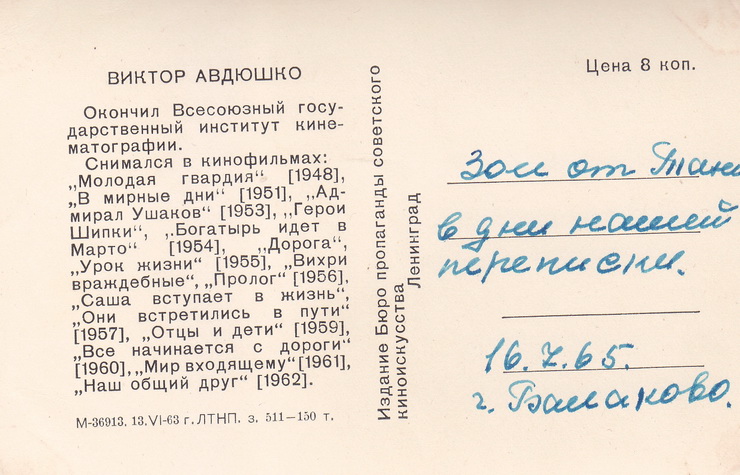 ВИКТОР АВДЮШКО
Окончил Всесоюзный госу-
дарственный институт кине-
матографии.
Снимался в кинофильмах:
„Молодая гвардия“ [1948],
„В мирные дни“ [1951], „Ад-
мирал Ушаков“ [1953], „Герои
Шипки“, „Богатырь идет в
Марто“ [1954], „Дорога“,
„Урок жизни“ [1955], „Вихри
враждебные“, „Пролог“ [1956],
„Саша вступает в жизнь“,
„Они встретились в пути“
[1957], „Отцы и дети“ [1959],
„Все начинается с дороги“
[1960], „Мир входящему“ [1961],
„Наш общий друг“ [1962].
М-36913. 13.VI-63 г. ЛТНП. з. 511—150 т.
Издание Бюро пропаганды советского
киноискусства
Ленинград
Цена 8 коп.
Зои от Тани
в дни нашей
переписки.
16.7.65.
г. Балаково.